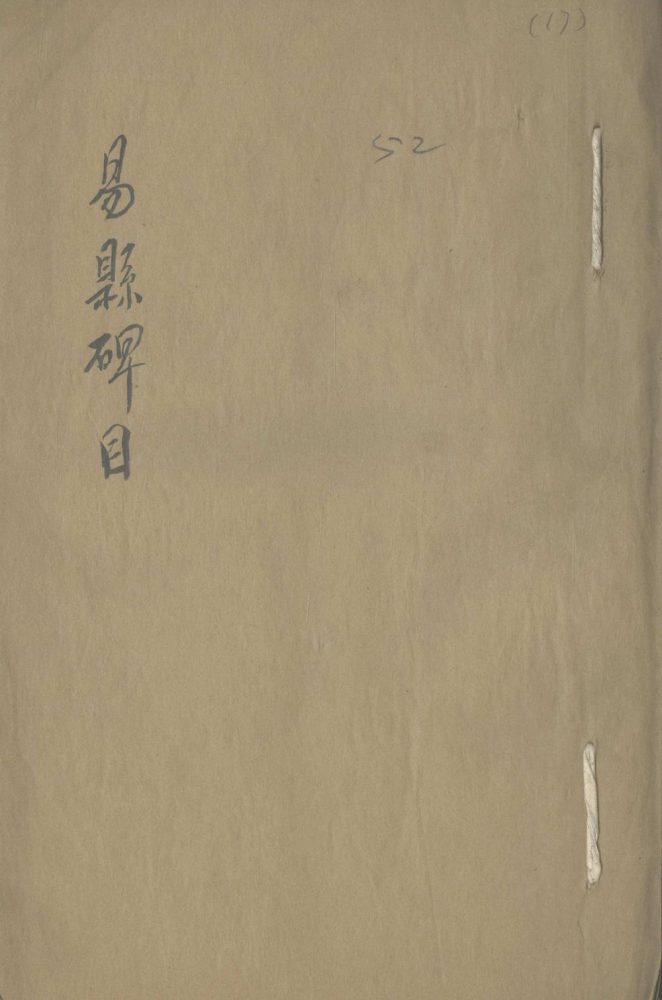 (17)
52
易縣碑目